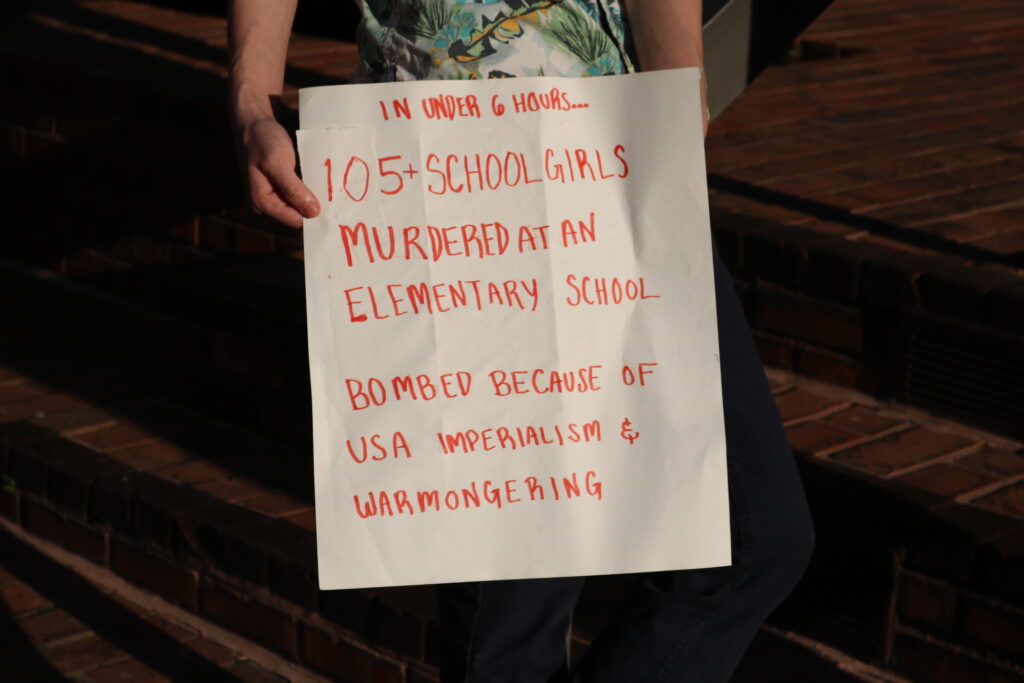 IN UNDER 6 HOURS...
105+ SCHOOLGIRLS
MURDERED AT AN
ELEMENTARY SCHOOL
BOMBED BECAUSE OF
USA IMPERIALISM &
WARMONGERING